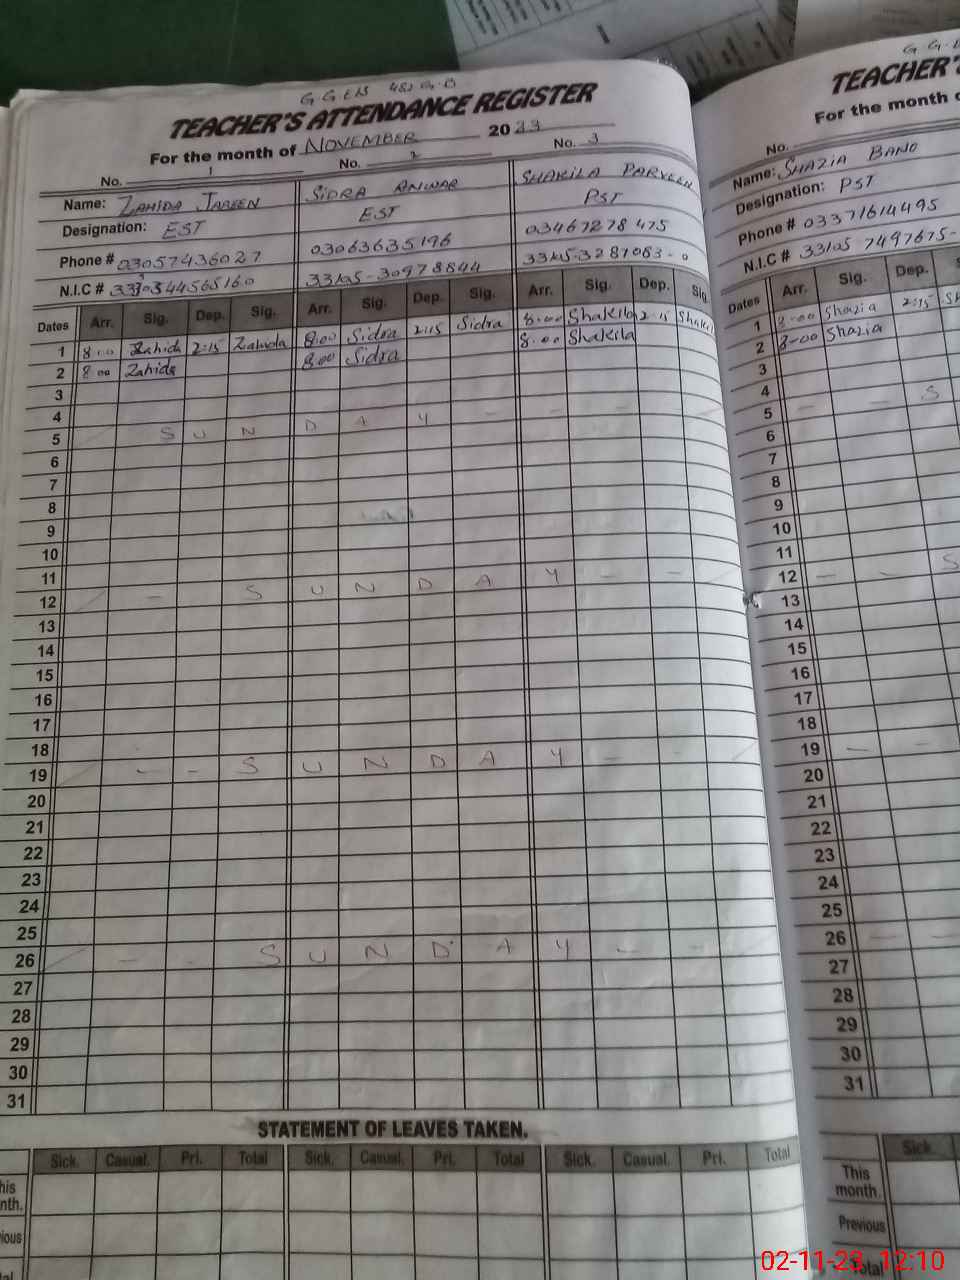 G G E/S 482 G.B
TEACHER'S ATTENDANCE REGISTER
For the month of NOVEMBER 2023
No. 1 No. 2 No. 3
Name: ZAHIDA JABEEN SIDRA ANWAR SHAKILA PARVEEN
Designation: EST EST PST
Phone # 03057436027 03063635196 03467278475
N.I.C # 33105-30978844 33105-3287083-0
Dates Arr. Sig. Dep. Sig. Arr. Sig. Dep. Sig. Arr. Sig. Dep. Sig.
1 8:00 Zahida 2:15 Zahida 8:00 Sidra 2:15 Sidra 8:00 Shakila 2:15 Shakil
2 8:00 Zahida 8:00 Sidra 8:00 Shakila
3
4
5 SUNDAY
6
7
8
9
10
11
12 SUNDAY
13
14
15
16
17
18
19 SUNDAY
20
21
22
23
24
25
26 SUNDAY
27
28
29
30
31
STATEMENT OF LEAVES TAKEN.
Sick. Casual. Pri. Total Sick. Casual. Pri. Total Sick. Casual. Pri. Total
his
nth.
ious
G G.
TEACHER'S
For the month o
No.
Name: SHAZIA BANO
Designation: PST
Phone # 03371614495
N.I.C # 33105 7497675-
Dates Arr. Sig. Dep.
1 8:00 Shazia 2:15 Sh
2 8:00 Shazia
3
4
5 S
6
7
8
9
10
11
12 S
13
14
15
16
17
18
19
20
21
22
23
24
25
26
27
28
29
30
31
Sick.
This
month.
Previous
Total
02-11-23 12:10